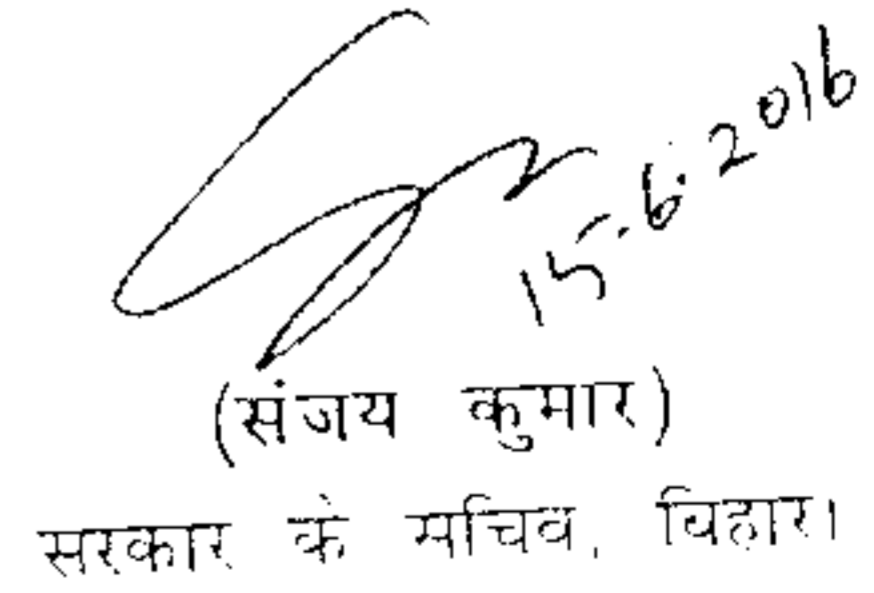 15.6.2016
(संजय कुमार)
सरकार के सचिव, बिहार।